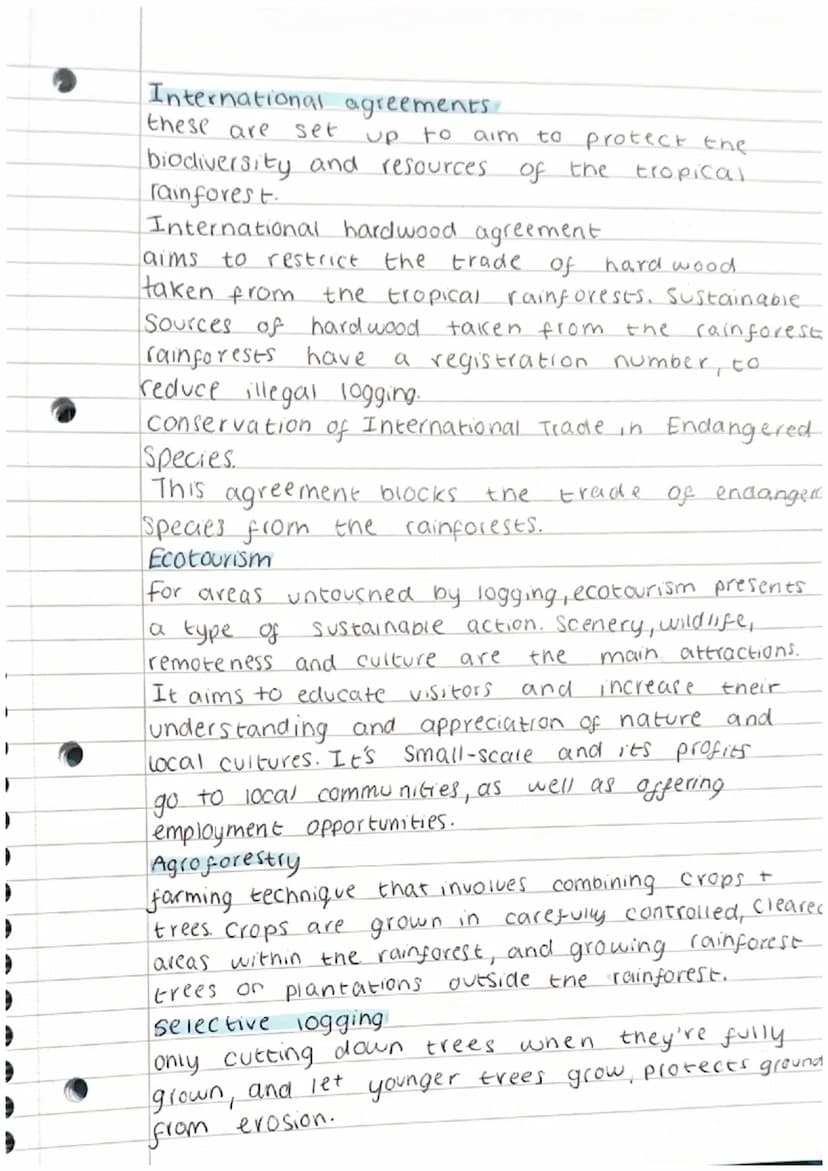 International agreements
these are set up to aim to protect the
biodiversity and resources of the tropical
rainforest.
International hardwood agreement
aims to restrict the trade of hard wood
taken from the tropical rainforests. Sustainable
sources of hardwood taken from the rainforest
rainforests have a registration number, to
reduce illegal logging.
conservation of International Trade in Endangered
Species.
This agreement blocks the trade of endanger
species from the rainforests.
Ecotourism
for areas untouched by logging, ecotourism presents
a type of sustainable action. Scenery, wildlife,
remoteness and culture are the main attractions.
It aims to educate visitors and increase their
understanding and appreciation of nature and
local cultures. It's small-scale and its profits
go to local communities, as well as offering
employment opportunities.
Agroforestry
farming technique that involves combining crops +
trees. Crops are grown in carefully controlled, cleared
areas within the rainforest, and growing rainforest
trees on plantations outside the rainforest.
selective logging
only cutting down trees when they're fully
grown, and let younger trees grow, protects ground
from erosion.